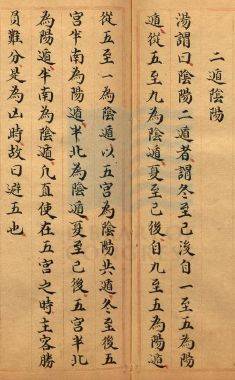 二遁陰陽
湯謂曰陰陽二遁者謂冬至已後自一至五為陽
遁從五至九為陰遁夏至已後自九至五為陽遁
從五至一為陰遁以五宮為陰陽共遁冬至後五
宮半南為陽遁半北為陰遁夏至已後五宮半北
為陽遁半南為陰遁凡直使在五宮之時主客勝
負難分是為凶時故曰避五也